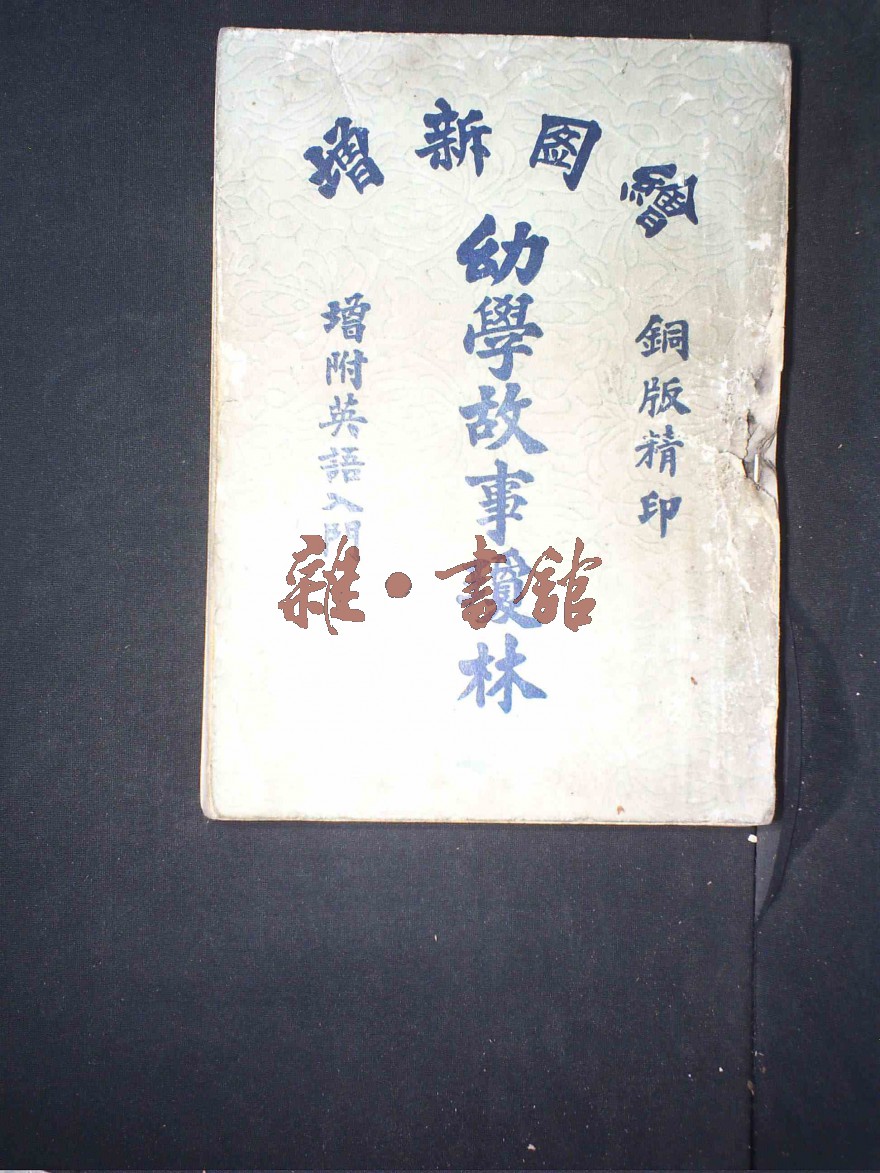 繪圖新增
銅版精印
幼學故事瓊林
增附英語入門
雜•書舘